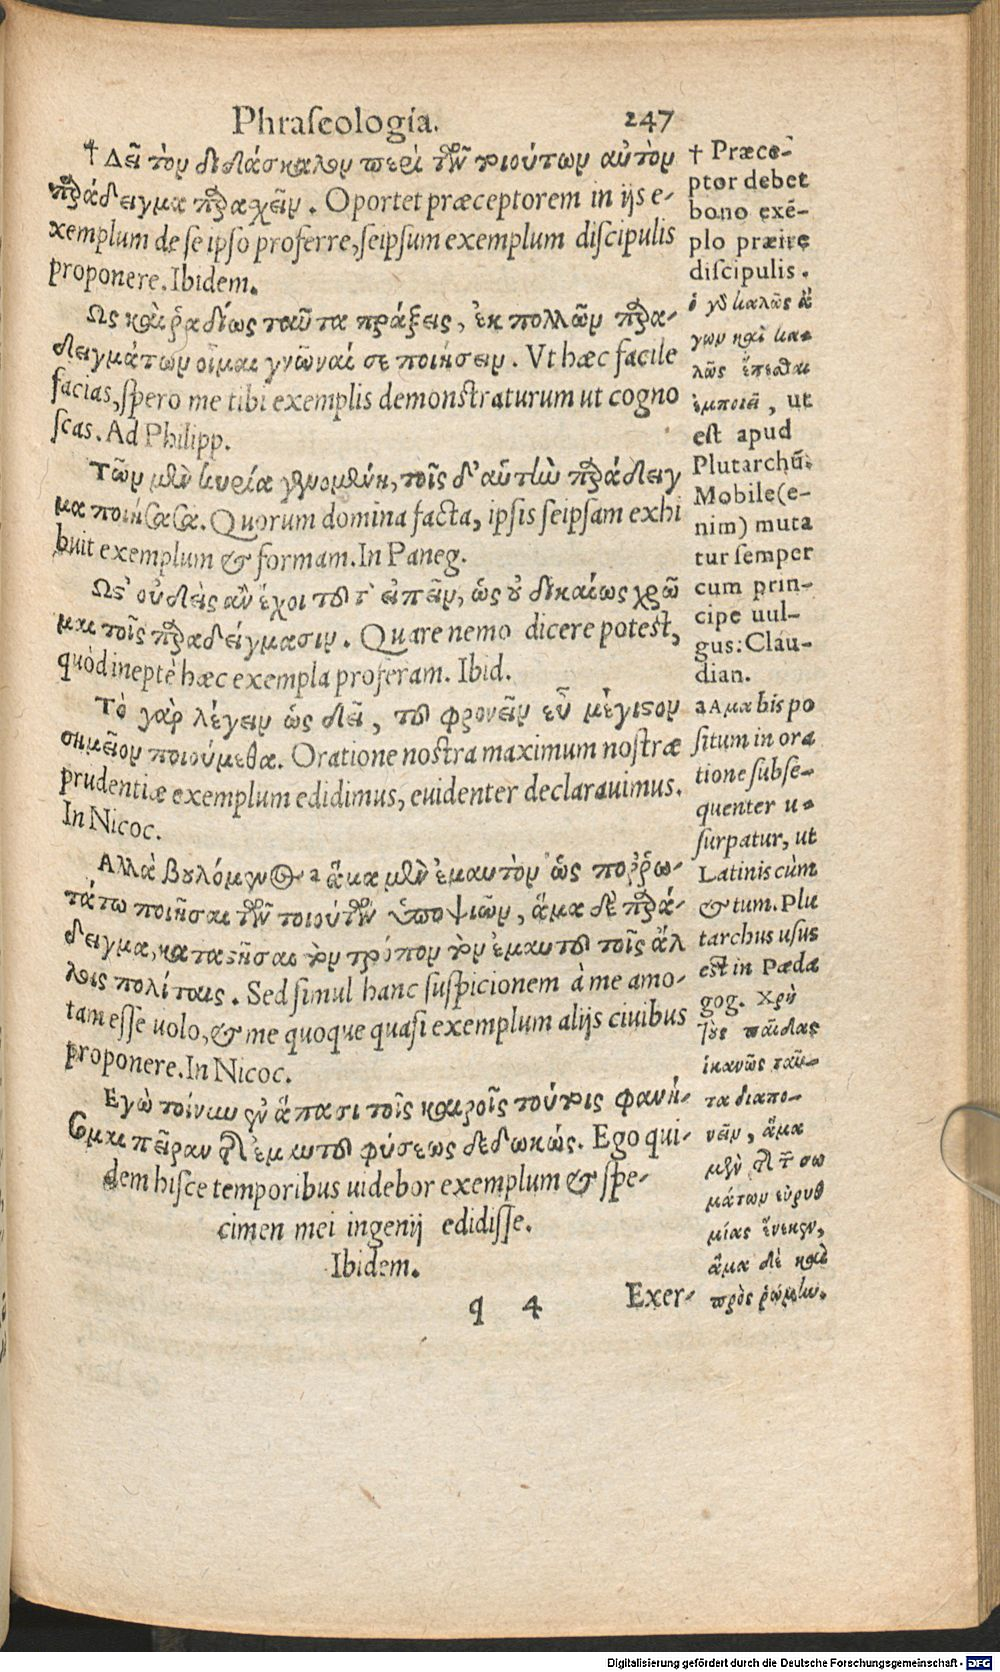 Phraſeologia. 247
† Δεῖ τὸν διδάσκαλον περὶ τῶν τοιούτων αὐτὸν
παράδειγμα παραχεῖν. Oportet præceptorem in ijs e-
xemplum de ſe ipſo proferre, ſeipſum exemplum diſcipulis
proponere. Ibidem.
Ως καὶ ῥαδίως ταῦτα πράξεις, ἐκ πολλῶν παρα-
δειγμάτων οἶμαι γνῶναί σε ποιήσειν. Vt hæc facile
facias, ſpero me tibi exemplis demonſtraturum ut cogno
ſcas. Ad Philipp.
Τῶν μὲν κυρία γενομένη, τοῖς δ' αὑτὴν παράδειγ
μα ποιήσασα. Quorum domina facta, ipſis ſeipſam exhi
buit exemplum & formam. In Paneg.
Ως' οὐδεὶς ἂν ἔχοι τοῦτ' εἰπεῖν, ὡς οὐ δικαίως χρῶ
μαι τοῖς παραδείγμασιν. Quare nemo dicere poteſt,
quòd ineptè hæc exempla proferam. Ibid.
Τὸ γὰρ λέγειν ὡς δεῖ, τοῦ φρονεῖν εὖ μέγιστον
σημεῖον ποιούμεθα. Oratione noſtra maximum noſtræ
prudentiæ exemplum edidimus, euidenter declarauimus.
In Nicoc.
Αλλὰ βουλόμενος a ἅμα μὲν ἐμαυτὸν ὡς πορρω-
τάτω ποιῆσαι τῶν τοιούτων ὑποψιῶν, ἅμα δὲ παρά-
δειγμα καταστῆσαι τὸν τρόπον τὸν ἐμαυτοῦ τοῖς ἄλ
λοις πολίταις. Sed ſimul hanc ſuſpicionem à me amo-
tam eſſe uolo, & me quoque quaſi exemplum alijs ciuibus
proponere. In Nicoc.
Εγὼ τοίνυν ἐν ἅπασι τοῖς καιροῖς τούτοις φανή-
σομαι πεῖραν τῆς ἐμαυτοῦ φύσεως δεδωκώς. Ego qui-
dem hiſce temporibus uidebor exemplum & ſpe-
cimen mei ingenij edidiſſe.
Ibidem.
q 4 Exer-
† Præce-
ptor debet
bono exẽ-
plo præire
diſcipulis.
ὁ γὰρ καλῶς ἄ
γων καὶ κα-
λῶς ἕπεσθαι
ἐμποιεῖ, ut
eſt apud
Plutarchũ.
Mobile (e-
nim) muta
tur ſemper
cum prin-
cipe uul-
gus: Clau-
dian.
a Αμα bis po
ſitum in ora
tione ſubſe-
quenter u-
ſurpatur, ut
Latinis cùm
& tum. Plu
tarchus uſus
eſt in Pæda
gog. Χρὴ
τοὺς παῖδας
ἱκανῶς ταῦ-
τα διαπο-
νεῖν, ἅμα
μὲν τῆς τῶν σω
μάτων εὐρυθ
μίας ἕνεκεν,
ἅμα δὲ καὶ
πρὸς ῥώμην.
Digitalisierung gefördert durch die Deutsche Forschungsgemeinschaft - DFG